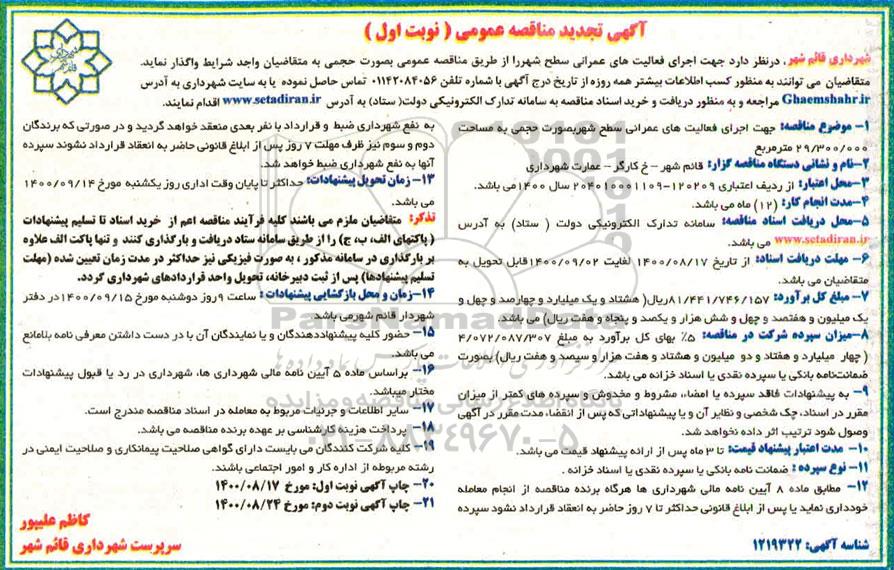 آگهی تجدید مناقصه عمومی ( نوبت اول )
شهرداری قائم شهر، درنظر دارد جهت اجرای فعالیت های عمرانی سطح شهررا از طریق مناقصه عمومی بصورت حجمی به متقاضیان واجد شرایط واگذار نماید.
متقاضیان می توانند به منظور کسب اطلاعات بیشتر همه روزه از تاریخ درج آگهی با شماره تلفن ۰۱۱۴۲۰۸۴۰۵۶ تماس حاصل نموده یا به سایت شهرداری به آدرس
Ghaemshahr.ir مراجعه و به منظور دریافت و خرید اسناد مناقصه به سامانه تدارک الکترونیکی دولت( ستاد) به آدرس www.setadiran.ir اقدام نمایند.
۱- موضوع مناقصه: جهت اجرای فعالیت های عمرانی سطح شهربصورت حجمی به مساحت
۲۹/۳۰۰/۰۰۰ مترمربع
۲-نام و نشانی دستگاه مناقصه گزار: قائم شهر – خ کارگر – عمارت شهرداری
۳-محل اعتبار: از ردیف اعتباری ۱۲۰۲۰۹-۲۰۴۰۱۰۰۰۱۱۰۹ سال ۱۴۰۰ می باشد.
۴-مدت انجام کار: (۱۲) ماه می باشد.
۵-محل دریافت اسناد مناقصه: سامانه تدارک الکترونیکی دولت ( ستاد) به آدرس
www.setadiran.ir می باشد.
۶- مهلت دریافت اسناد: از تاریخ ۱۴۰۰/۰۸/۱۷ لغایت ۱۴۰۰/۰۹/۰۲ قابل تحویل به
متقاضیان می باشد.
۷- مبلغ کل برآورد: ۸۱/۴۴۱/۷۴۶/۱۵۷ریال( هشتاد و یک میلیارد و چهارصد و چهل و
یک میلیون و هفتصد و چهل و شش هزار و یکصد و پنجاه و هفت ریال) می باشد.
۸-میزان سپرده شرکت در مناقصه: ۵٪ بهای کل برآورد به مبلغ ۴/۰۷۲/۰۸۷/۳۰۷
( چهار میلیارد و هفتاد و دو میلیون و هشتاد و هفت هزار و سیصد و هفت ریال) بصورت
ضمانت‌نامه بانکی یا سپرده نقدی یا اسناد خزانه می باشد.
۹- به پیشنهادات فاقد سپرده یا امضاء، مشروط و مخدوش و سپرده های کمتر از میزان
مقرر در اسناد، چک شخصی و نظایر آن و یا پیشنهاداتی که پس از انقضاء مدت مقرر در آگهی
وصول شود ترتیب اثر داده نخواهد شد.
۱۰- مدت اعتبار پیشنهاد قیمت: تا ۳ ماه پس از ارائه پیشنهاد قیمت می باشد.
۱۱- نوع سپرده : ضمانت نامه بانکی یا سپرده نقدی یا اسناد خزانه .
۱۲- مطابق ماده ۸ آیین نامه مالی شهرداری ها هرگاه برنده مناقصه از انجام معامله
خودداری نماید یا پس از ابلاغ قانونی حداکثر تا ۷ روز حاضر به انعقاد قرارداد نشود سپرده
شناسه آگهی: ۱۲۱۹۳۲۲
به نفع شهرداری ضبط و قرارداد با نفر بعدی منعقد خواهد گردید و در صورتی که برندگان
دوم و سوم نیز ظرف مهلت ۷ روز پس از ابلاغ قانونی حاضر به انعقاد قرارداد نشوند سپرده
آنها به نفع شهرداری ضبط خواهد شد.
۱۳- زمان تحویل پیشنهادات: حداکثر تا پایان وقت اداری روز یکشنبه مورخ ۱۴۰۰/۰۹/۱۴
می باشد.
تذکر: متقاضیان ملزم می باشند کلیه فرآیند مناقصه اعم از خرید اسناد تا تسلیم پیشنهادات
( پاکتهای الف، ب، ج) را از طریق سامانه ستاد دریافت و بارگذاری کنند و تنها پاکت الف علاوه
بر بارگذاری در سامانه مذکور ، به صورت فیزیکی نیز حداکثر در مدت زمان تعیین شده (مهلت
تسلیم پیشنهادها) پس از ثبت دبیرخانه، تحویل واحد قراردادهای شهرداری گردد.
۱۴-زمان و محل بازگشایی پیشنهادات : ساعت ۹ روز دوشنبه مورخ ۱۴۰۰/۰۹/۱۵ در دفتر
شهردار قائم شهرمی باشد.
۱۵- حضور کلیه پیشنهاددهندگان و یا نمایندگان آن با در دست داشتن معرفی نامه بلامانع
می باشد.
۱۶- براساس ماده ۵ آیین نامه مالی شهرداری ها، شهرداری در رد یا قبول پیشنهادات
مختار میباشد.
۱۷- سایر اطلاعات و جزئیات مربوط به معامله در اسناد مناقصه مندرج است.
۱۸- پرداخت هزینه کارشناسی بر عهده برنده مناقصه می باشد.
۱۹- کلیه شرکت کنندگان می بایست دارای گواهی صلاحیت پیمانکاری و صلاحیت ایمنی در
رشته مربوطه از اداره کار و امور اجتماعی باشند.
۲۰- چاپ آگهی نوبت اول: مورخ ۱۴۰۰/۰۸/۱۷
۲۱- چاپ آگهی نوبت دوم: مورخ ۱۴۰۰/۰۸/۲۴
کاظم علیپور
سرپرست شهرداری قائم شهر
ParsNamadData
۰۲۱-۸۸۳۴۹۶۷۰-۵